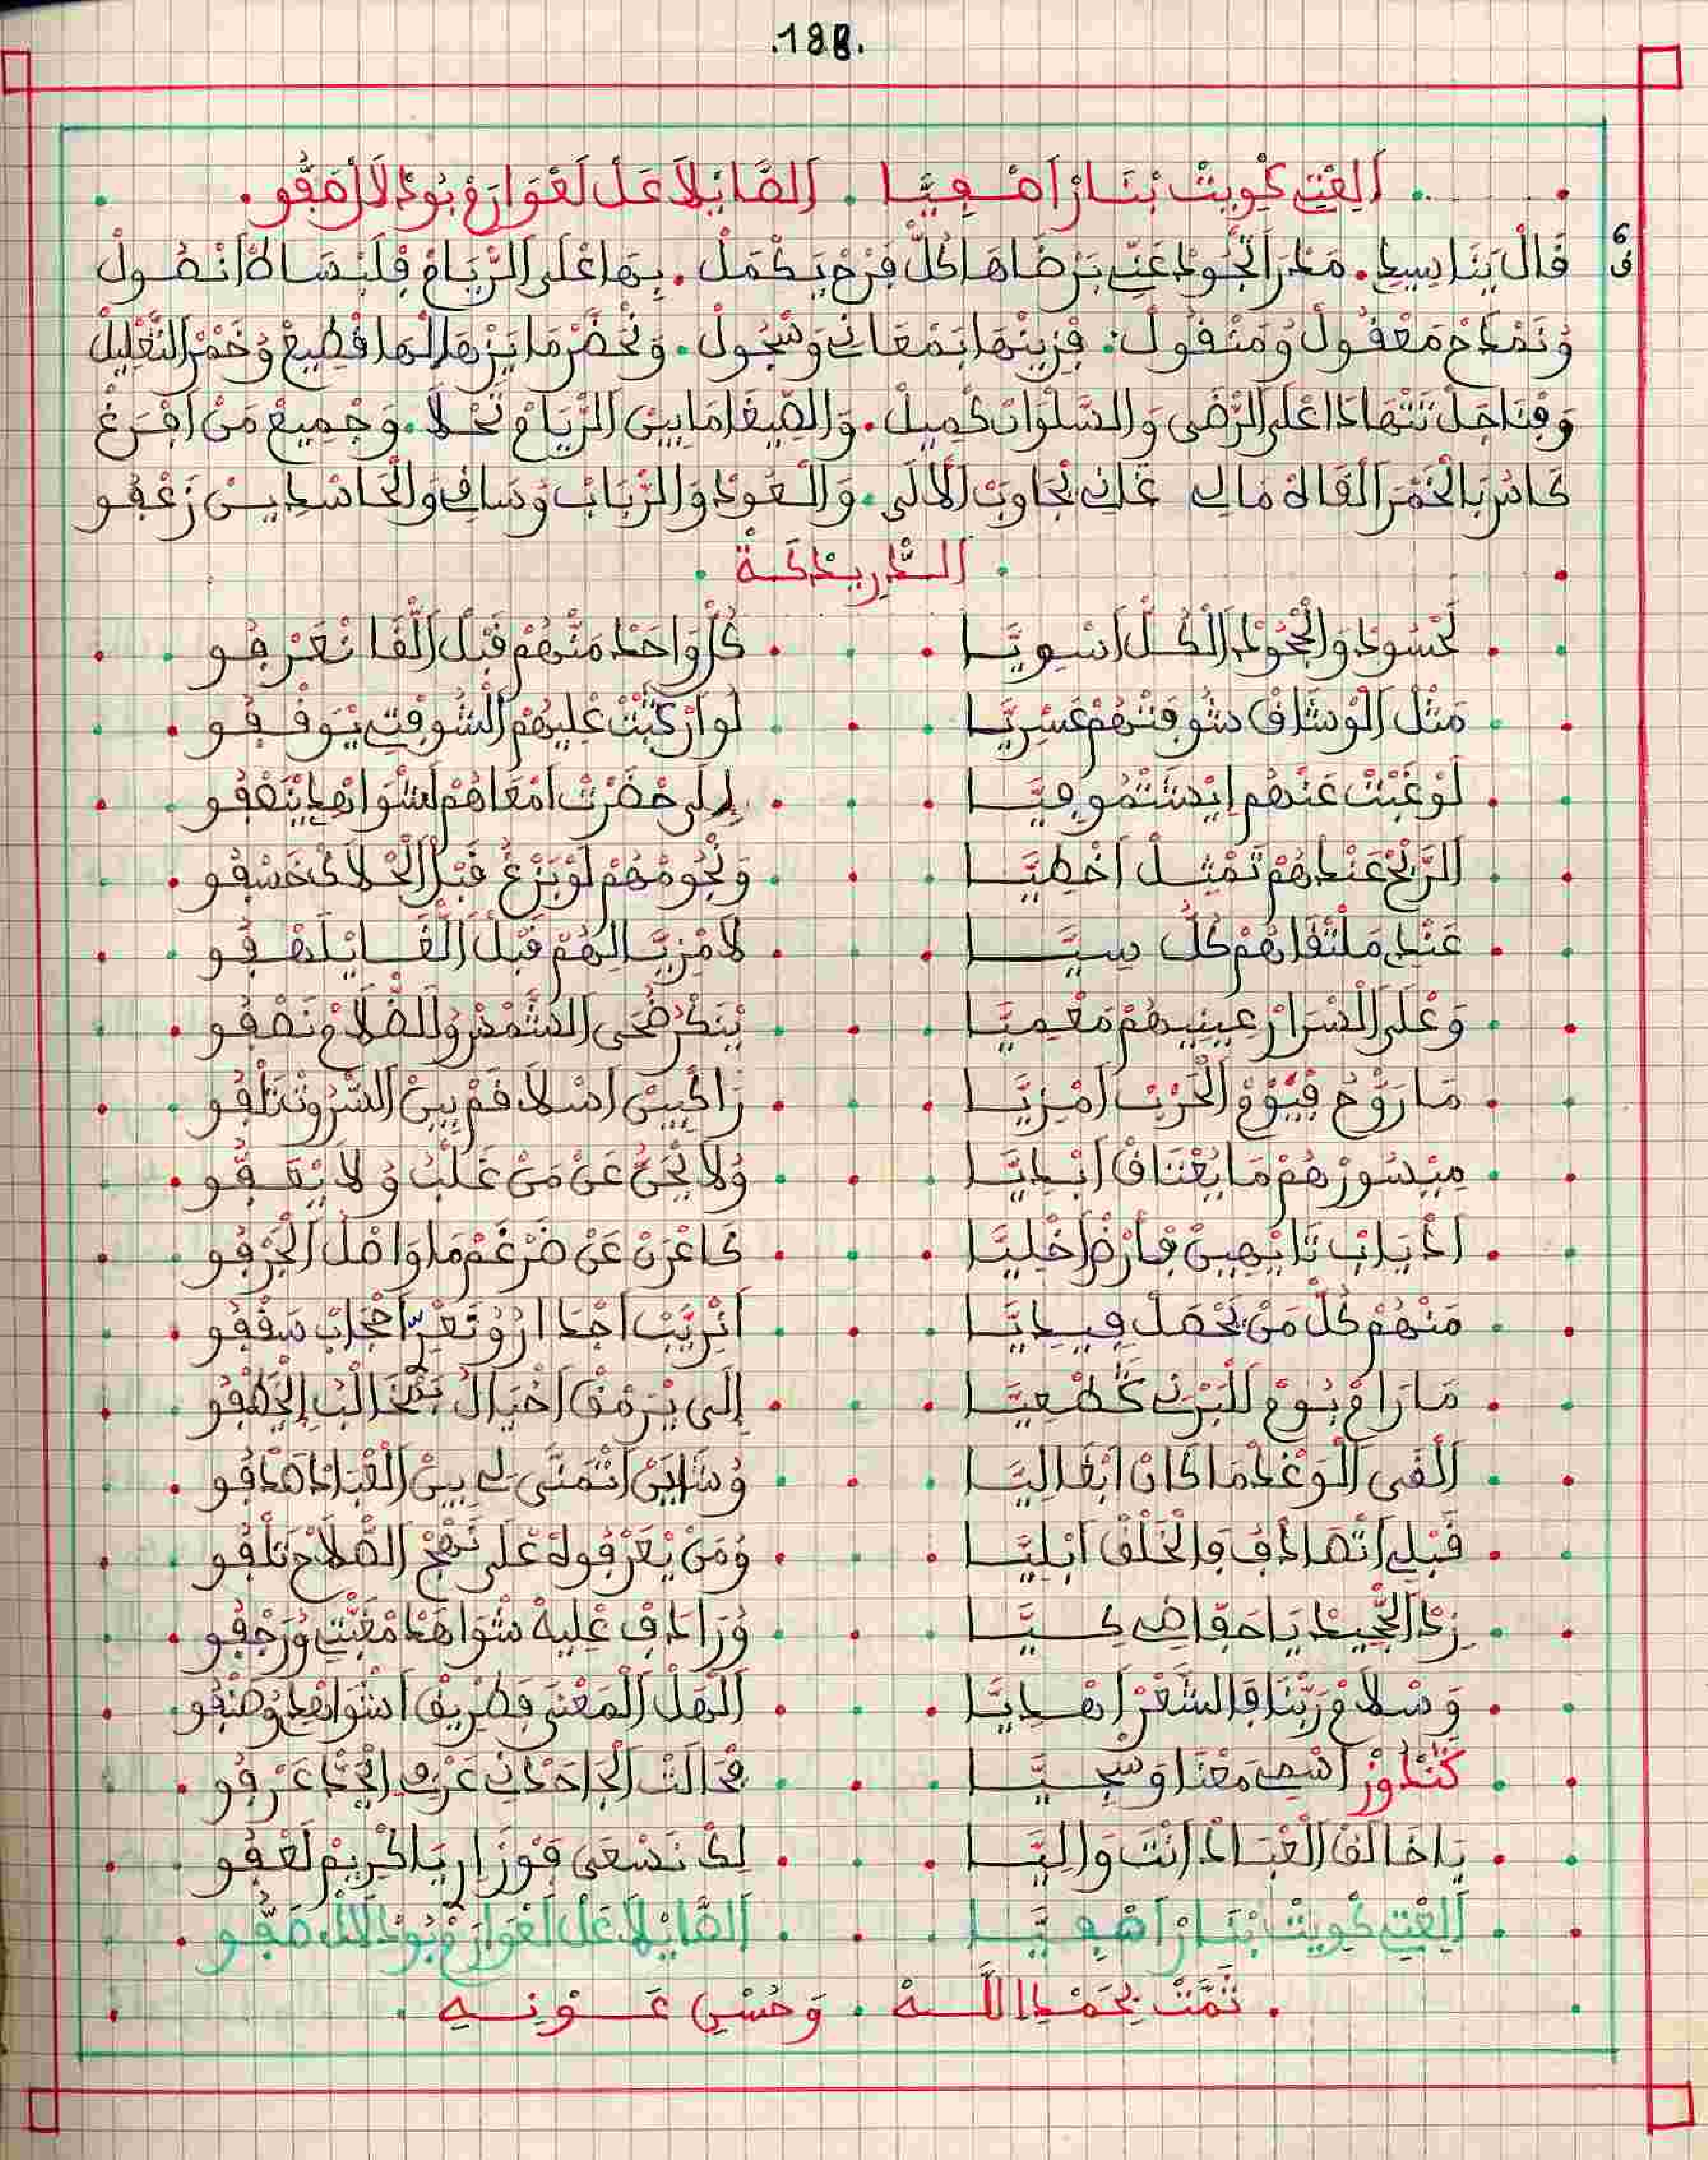 .188.
اَلِعْتِ كْوِيتْ بْنَارْ اَهْـوِيَّا . اَلصَّايْلَا عَلْ لَعْوَارَمْ بُودْلَالْ هَيّْفُو.
قَالْ يَنَا سِيدِ. مَدْرَ الْجُودْ عَنِّي بَرْضَاهَا كُلّْ فَرْحْ يَكْمَلْ. بِهَا عْلَى الرّْيَامْ فِلَبْسَاطْ اَنْصُولْ
وُنَمْدَحْ مَعْقُولْ وُمَنْقُولْ: فْزِينْهَا بَمْعَانِي وَسْجُولْ. وَنْحَضَّرْ مَا يَزْهَا لْهَا قْطِيعْ وُخَمْرْ التَّعْلِيلْ
وَفْنَاجَلْ تَتْهَادَا عْلَى الرّْضَى وَالسَّلْوَانْ كْمِيلْ. وَالصِّيفَا مَا بِينْ الرّْيَامْ تَحْلَا. وَجْمِيعْ مَنْ اَفْرَغْ
كَاسْ بَالْخَمْرَ الْقَاهْ مَالِي غَانِي تْجَاوَبْ اَلْآلَى. وَالْعُودْ وَالرّْبَابْ وُسَاقِي وَالْحَاسْدِينْ زَعْفُو
اَلـدّْرِيدْكَـةْ
لَحْسُودْ وَالْجْحُودْ اَلْكُـلّْ اَسْوِيَّـا كُلّْ وَاحَدْ مَنّْهُمْ قَبْلْ اَلّْقَا نْعَرْفُو
مَثْلْ اَلْوْشَاقْ شُوفَتْهُمْ عَسْرِيَّـا لُو اَرْكَبْتْ عْلِيهُمْ اَلشُّوفْتِي يْوَقْفُو
لَوْ غَبْتْ عَنْهُمْ اِيْشَتْمُو فِيَّـا إِلَى حْضَرْتْ اَمْعَاهُمْ اَشْوَاهْدِي يَنّْعْفُو
اَلرَّبْحْ عَنْدْهُمْ تَمْثِيـلْ اَخْطِيَّـا وَنْجُومْهُمْ لَوْ بَزْغُو قَبْلْ اَلْحْلَاكْ خَسْفُو
عَنْدِ مَلْتْقَاهُمْ كُلّْ سِيَّـا لَا مْزِيَّـا لِهُمْ قَبْلْ اَلّْقَـا يْلَهْفُو
وَعْلَى اَلْسْرَارْ عِينِيهُمْ مَعْمِيَّـا يَنْكَرْ ضْحَى اَلشَّمْسْ وُالظّْلَامْ نَصْفُو
مَا رَوّْحُو فْيُومْ اَلْحَرْبْ اَمْزِيَّـا رَاكْبِينْ اَسْلَاقَمْ بِينْ اَلسّْرُوتْ تَلْفُو
مِيسُورْهُمْ مَا يُغْتَنَاقْ اَبْدِيَّـا وُلَا يْجِي عَنْ مَنْ غَلْبُو وُلَا يْقَـفُو
اَذْيَابْ تَايْهِينْ فَارْضْ اَخْلِيَّـا كَاعْرَنْ عَنْ ضَرْغَمْ مَاوَاصْلْ اَلْجَرْفُو
مَنْهُمْ كُلّْ مَنْ يَحْصَلْ فِيـدِيَّـا اَنْرِيَّبْ اَجْدَارُو وُنَعْرِّ اَخْجَابْ سَقْفُو
مَا رَامْ بُومْ لَلْبَرْنِي كَطْـعِيَّـا إِلَى يْرَمْقْ اَخْيَالْ بَمْخَالْبُ إِيخَطْفُو
اَلْقَى اَلْوَغْدْ مَا كَانْ اَبْقَالِيَّـا وُشَايَنْ اَنْتْمَنَّى لِي بِينْ اَلْعْبَادْ هَدْفُو
قَبْلِي اَتْصَادَفُ فَالْخَلْقْ اَبْلِيَّـا وُمَنْ يْعَرْفُوهْ عْلَى نَهْجْ اَلصّْلَاحْ تَلْفُو
زِدْ اَلْجْحِيدْ يَا حَفَّاضِي كِـيَّـا وُرَادَفْ عْلِيهْ شْوَاهَدْ مْغَبْتِي وُرَجْفُو
وَسْلَامْ رَبّْنَا فَالشَّعْرْ اَهْـدِيَّـا اَلْهَلْ اَلْمَعْنَى فَطْرِيقْ اَشْوَاهْدِي وُصَنْفُو
كَنْدُوزْ اَسْمِي مَعْنَا وَسْجِـيَّـا مْحَالَتْ اَلْجَاحَدْنِي عَرْفِي اِيْجْدْ عَـرْفُو
يَا خَالَقْ اَلْعْبَـادْ اَنْتَ وَالِيَّـا لِكْ نَسْعَى فَوْزَارِي يَاكْرِيمْ لَعْفُو
اَلِعْتِ كْوِيتْ بْنَـارْ اَهْـوِيَّـا اَلصَّايْلَا عَلْ لَعْوَارَمْ بُودْلَالْ هَيّْفُو
تَمَّتْ بِحَمْدِ اللَّـهْ . وَحُسْنِ عَـوْنِـهِ
6
ق